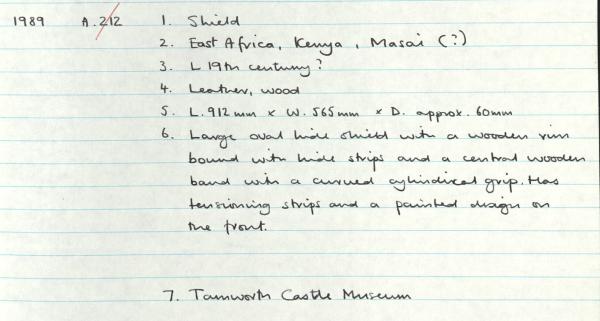 1989 A.212 1. Shield
2. East Africa, Kenya, Masai (?)
3. L 19th century?
4. Leather, wood
5. L. 912mm x W. 565mm x D. approx. 60mm
6. Large oval hide shield with a wooden rim
bound with hide strips and a central wooden
band with a curved cylindrical grip. Has
tensioning strips and a painted design on
the front.
7. Tamworth Castle Museum